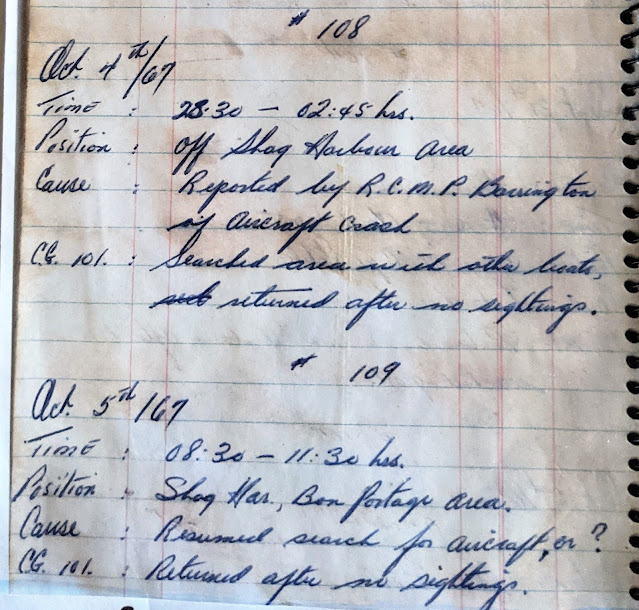 # 108
Oct. 4th/67
Time : 23:30 - 02:45 hrs.
Position : Off Shag Harbour area
Cause : Reported by R.C.M.P. Barrington
of aircraft crash
C.G. 101. : Searched area with other boats,
returned after no sightings.
# 109
Oct. 5th/67
Time : 08:30 - 11:30 hrs.
Position : Shag Har, Bon Portage area.
Cause : Resumed search for aircraft, or ?
C.G. 101. : Returned after no sightings.